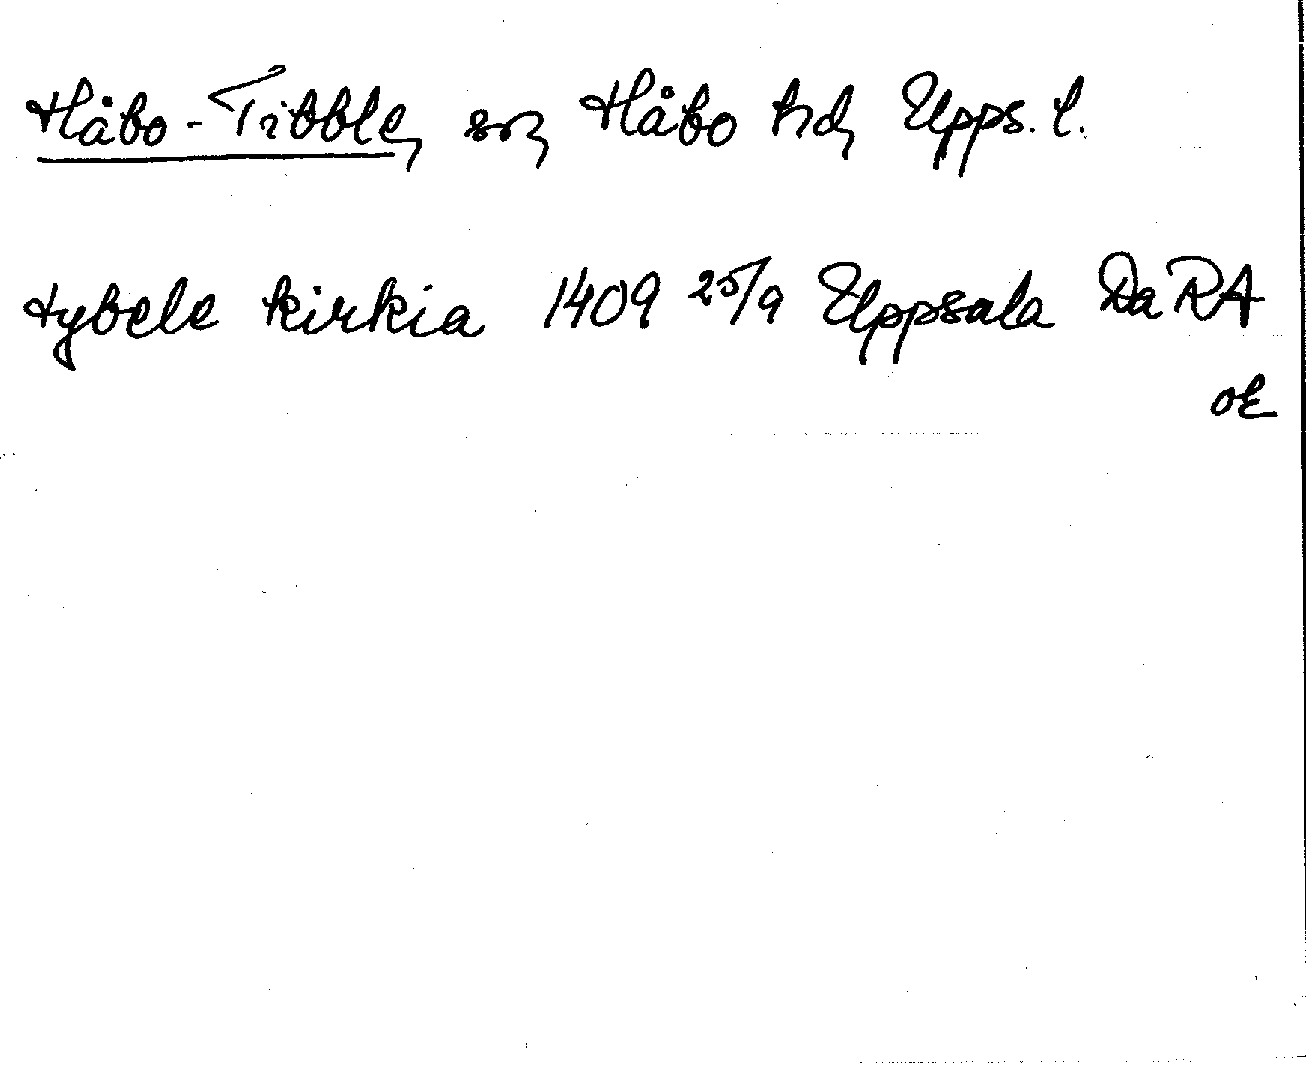 Håbo-Tibble, sn, Håbo hd, Upps. l.
tybele kirkia 1409 25/9 Uppsala Da RA
or